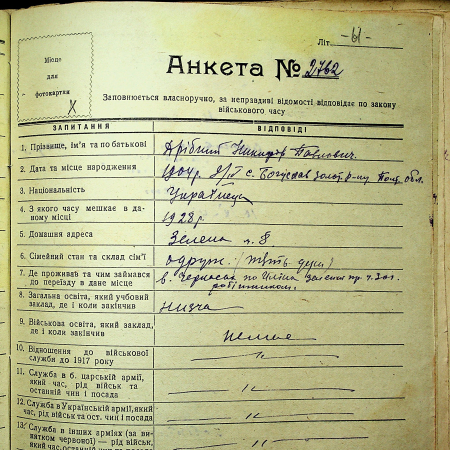 Літ. -61-
Місце
для
фотокартки
Х
Анкета № 2762
Заповнюється власноручно, за неправдиві відомості відповідає по закону
військового часу
ЗАПИТАННЯ ВІДПОВІДІ
1. Прізвище, ім'я та по батькові Дрібний Никифор Павлович.
2. Дата та місце народження 1904 р. с. Богуслав
3. Національність Українець
4. З якого часу мешкає в да-
ному місці 1928 р
5. Домашня адреса Зелена ч. 8
6. Сімейний стан та склад сім'ї одруж.
7. Де проживать та чим займався
до переїзду в дане місце робітником.
8. Загальна освіта, який учбовий
заклад, де і коли закінчив низча
9. Військова освіта, який заклад,
де і коли закінчив немає
10. Відношення до військової
служби до 1917 року
11. Служба в б. царській армії,
який час, рід військ та
останній чин і посада
12. Служба в Українській армії, який
час, рід військ та ост. чин і посада
13. Служба в інших арміях (за ви-
нятком червоної) — рід військ,
який час, останній чин та посада